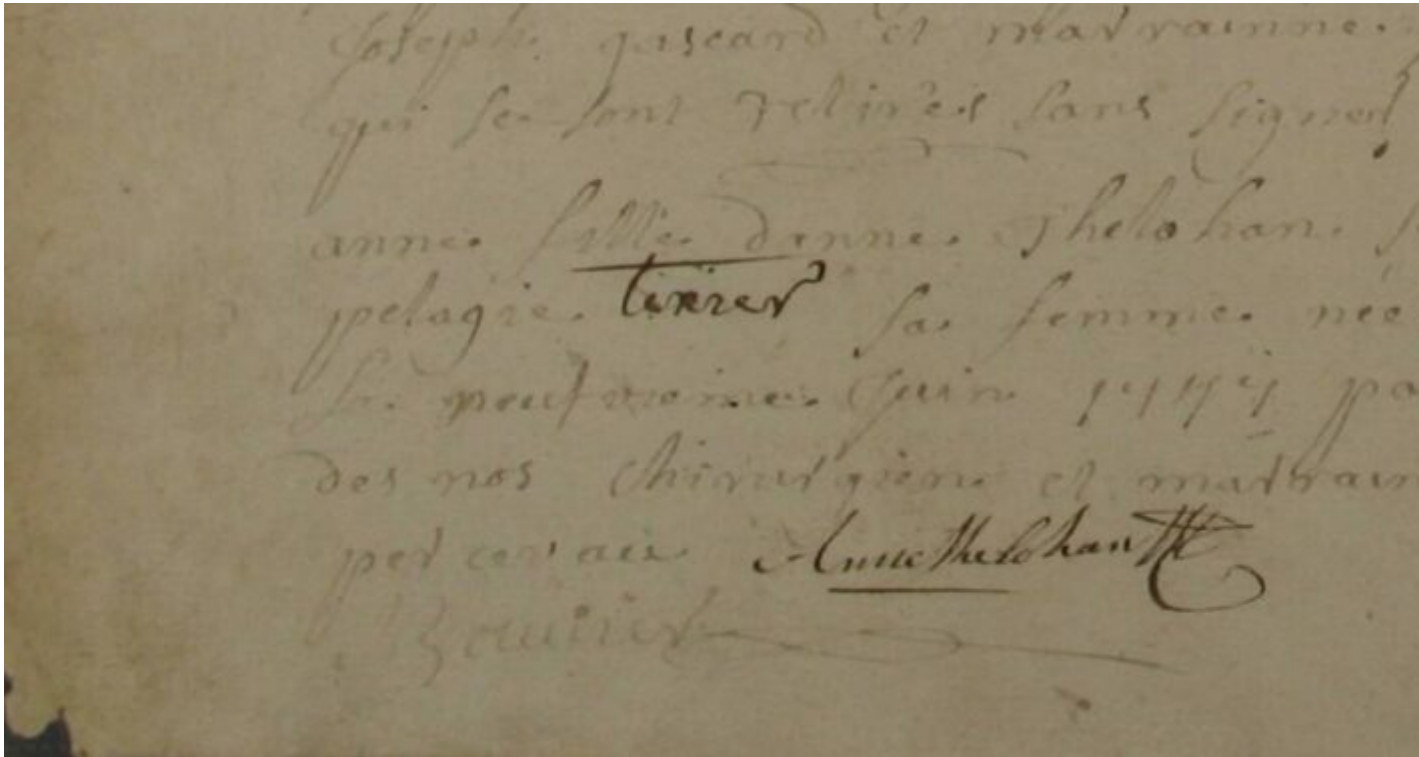 Joseph gascard et marrainne
qui se sont retirés sans signer
anne fille d'anne Thelohan
pelagie tixier sa femme née
le neufvieme Juin
des nos chirurgien et marrain
percevaux Anne thelohan